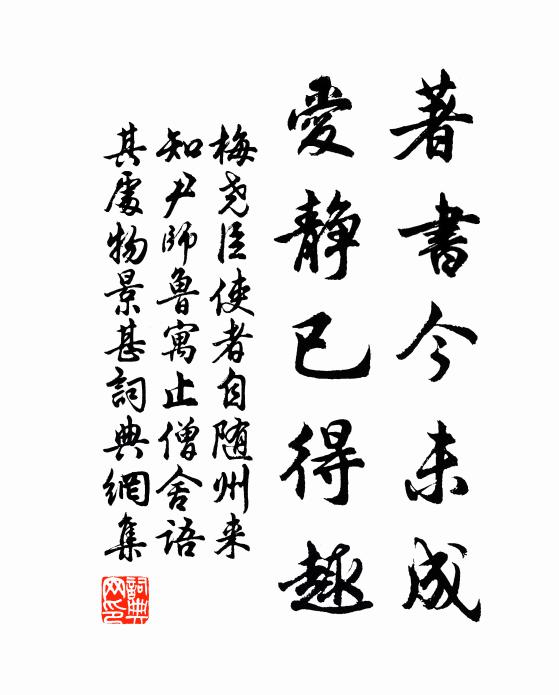 著書今未成
愛靜已得趣
梅尧臣使者自随州来
知尹師魯寓止僧舍語
其處物景甚詞典網集
詞典
网印